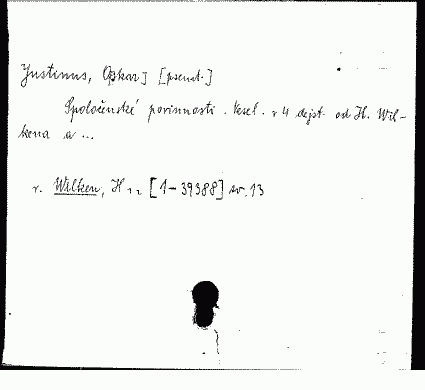 Justinus, Oskar] [pseud.]
Spoločenské povinnosti. Vesel. v 4 dejst. od H. Wil-
kena a ...
v. Wilken, H [1-39388] sv. 13